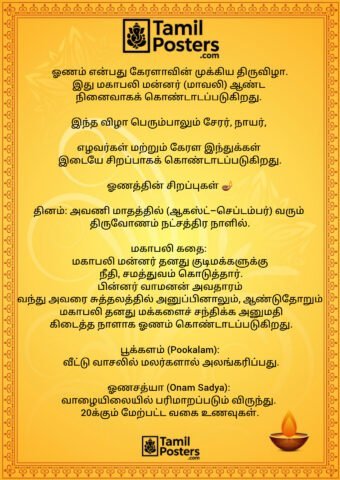 Tamil
Posters
.com
ஓணம் என்பது கேரளாவின் முக்கிய திருவிழா.
இது மகாபலி மன்னர் (மாவலி) ஆண்ட
நினைவாகக் கொண்டாடப்படுகிறது.
இந்த விழா பெரும்பாலும் சேரர், நாயர்,
எழவர்கள் மற்றும் கேரள இந்துக்கள்
இடையே சிறப்பாகக் கொண்டாடப்படுகிறது.
ஓணத்தின் சிறப்புகள் 🪔
தினம்: அவணி மாதத்தில் (ஆகஸ்ட்–செப்டம்பர்) வரும்
திருவோணம் நட்சத்திர நாளில்.
மகாபலி கதை:
மகாபலி மன்னர் தனது குடிமக்களுக்கு
நீதி, சமத்துவம் கொடுத்தார்.
பின்னர் வாமனன் அவதாரம்
வந்து அவரை சுத்தலத்தில் அனுப்பினாலும், ஆண்டுதோறும்
மகாபலி தனது மக்களைச் சந்திக்க அனுமதி
கிடைத்த நாளாக ஓணம் கொண்டாடப்படுகிறது.
பூக்களம் (Pookalam):
வீட்டு வாசலில் மலர்களால் அலங்கரிப்பது.
ஓணசத்யா (Onam Sadya):
வாழையிலையில் பரிமாறப்படும் விருந்து.
20க்கும் மேற்பட்ட வகை உணவுகள்.
Tamil
Posters
.com